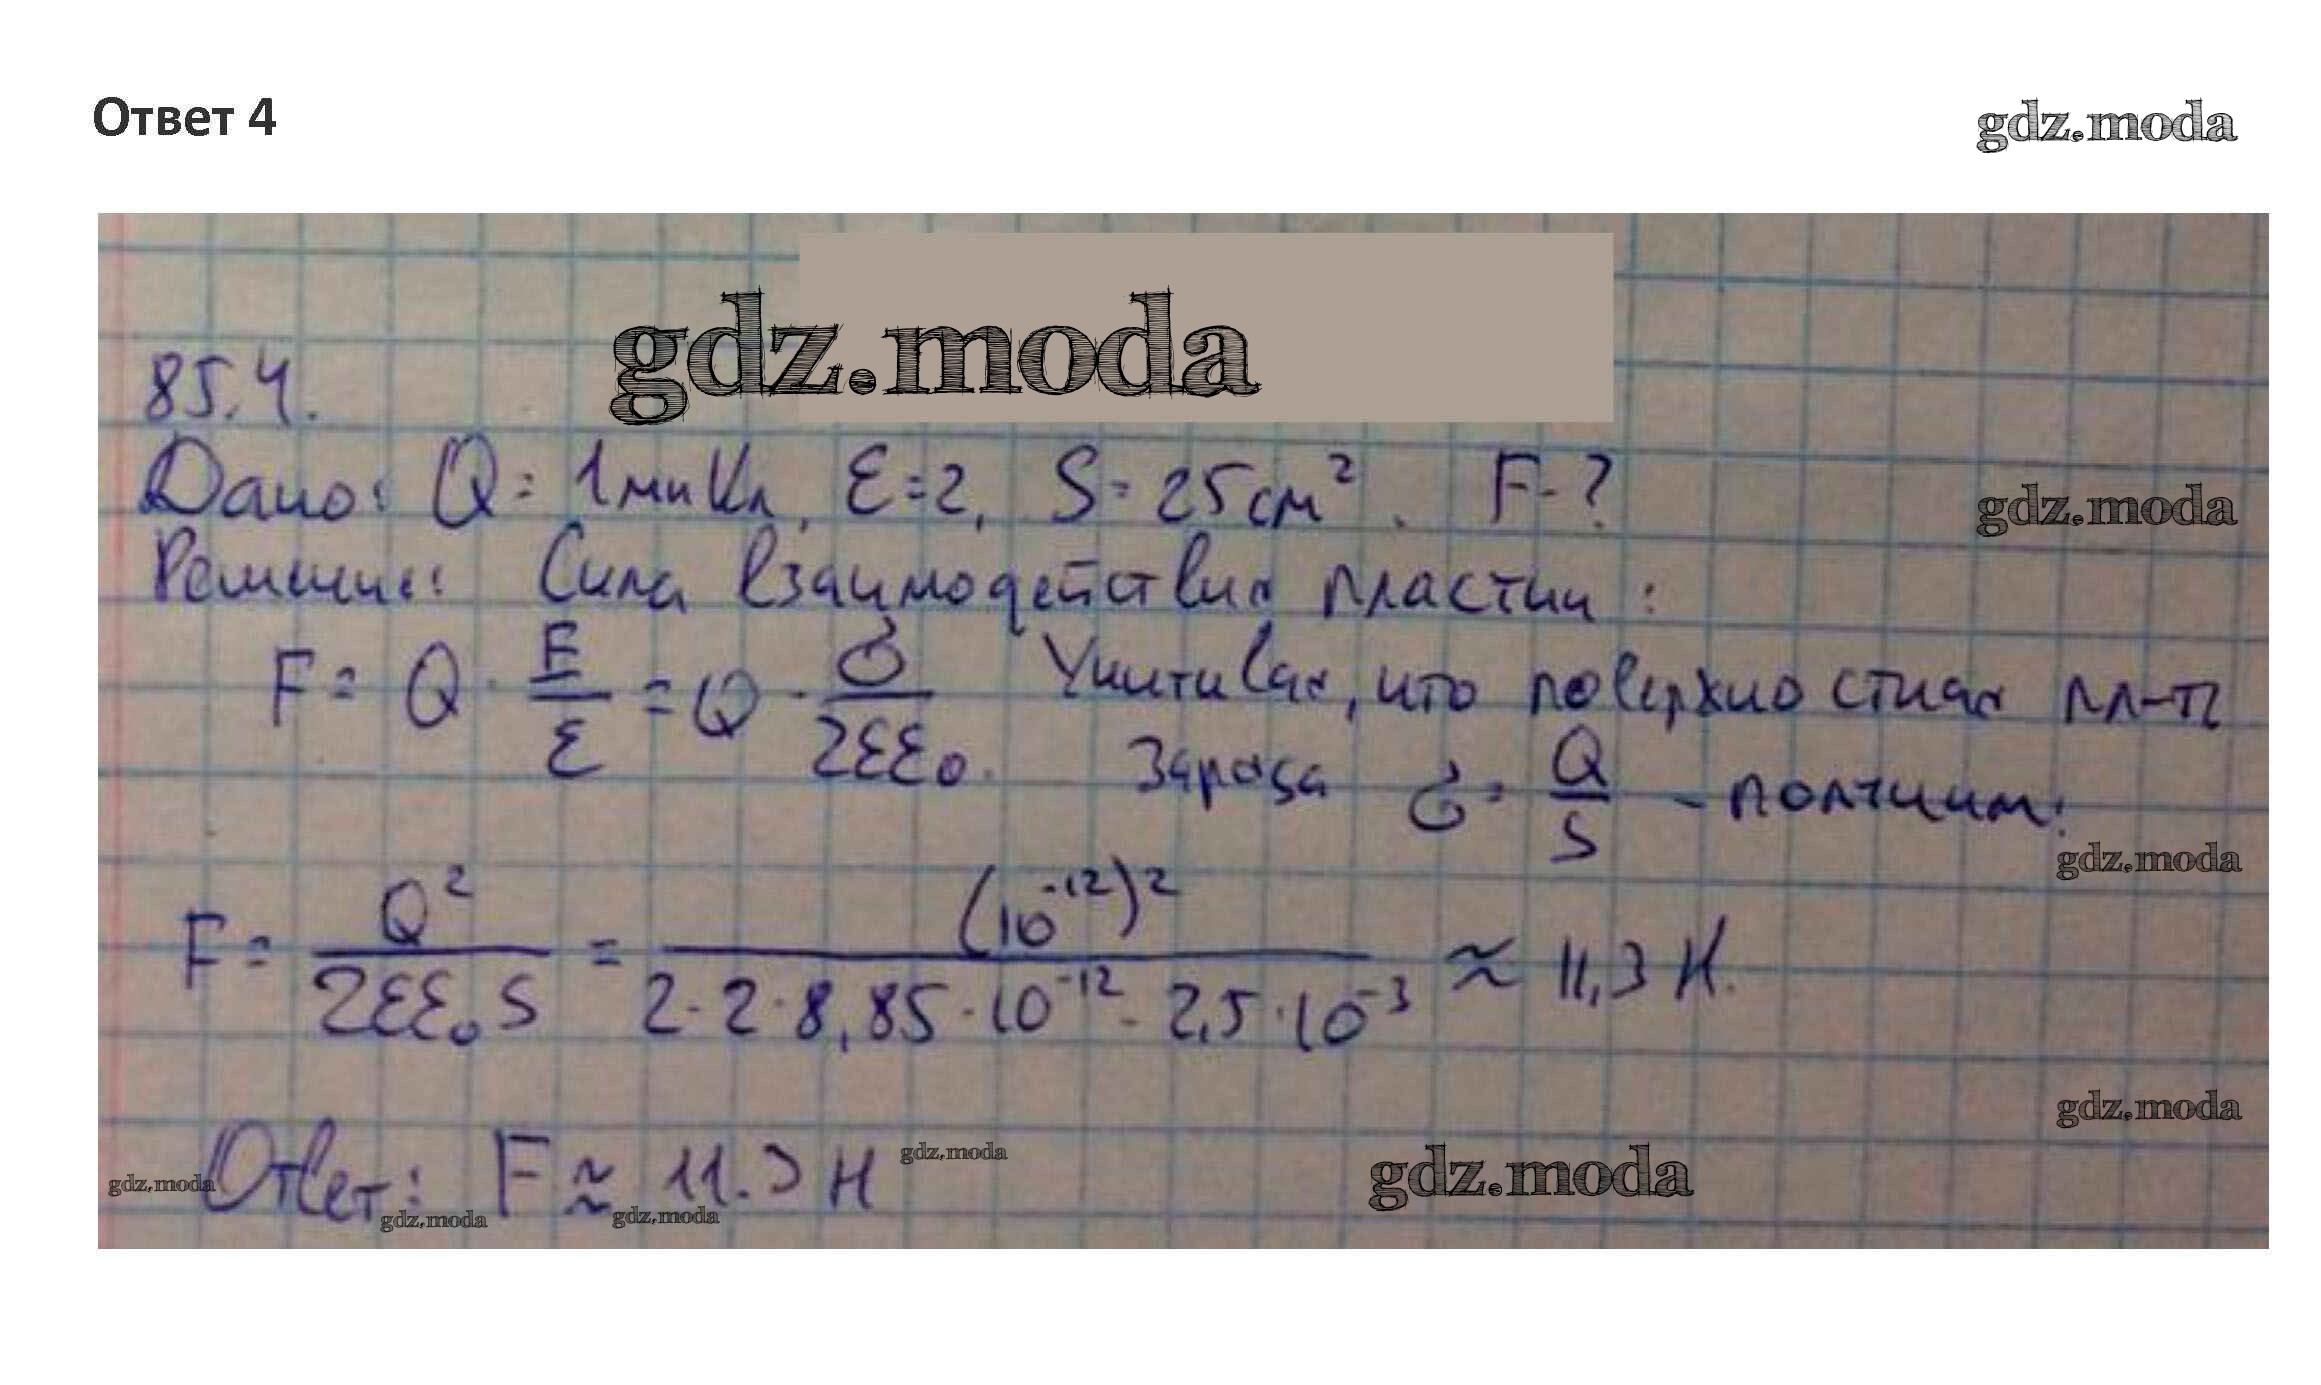 Ответ 4
gdz.moda
gdz.moda
85.4.
Дано: Q = 1 мкКл, ε=2, S = 25 см². F-?
gdz.moda
Решение: Сила взаимодействия пластин:
F = Q · E/ε = Q · σ/2εε₀. Учитывая, что поверхностная пл-ть
Заряда σ = Q/S – получим:
gdz.moda
F = Q²/2εε₀S = (10⁻¹²)²/2·2·8,85·10⁻¹²·2,5·10⁻³ ≈ 11,3 Н.
gdz.moda
Ответ: F ≈ 11.3 Н
gdz.moda
gdz.moda
gdz.moda
gdz.moda
gdz.moda